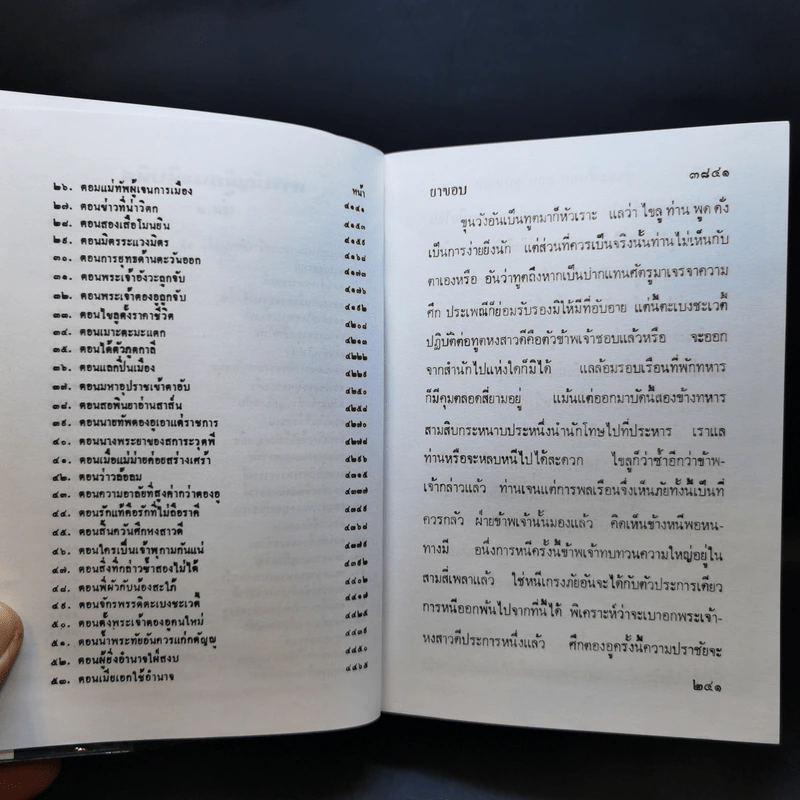 หน้า
๒๖. ตอนแม่ทัพผู้เจนการเมือง ๔๑๔๑
๒๗. ตอนข่าวที่น่าวิตก ๔๑๕๓
๒๘. ตอนสองเสือโมนยิน ๔๑๕๙
๒๙. ตอนมิตรระแวงมิตร ๔๑๖๔
๓๐. ตอนการยุทธด้านตะวันออก ๔๑๗๓
๓๑. ตอนพระเจ้าอังวะถูกจับ ๔๑๗๖
๓๒. ตอนพระเจ้าตองอูถูกจับ ๔๑๙๒
๓๓. ตอนไขลูตั้งราคาชีวิต ๔๒๐๘
๓๔. ตอนเมาะตะมะแตก
๓๕. ตอนได้ตัวภูตกาลี ๔๒๒๒
๓๖. ตอนแลกปิ่นเมือง
๓๗. ตอนมหาอุปราชเจ้าตาอับ ๔๒๕๐
๓๘. ตอนสอพินยาอ่านสาส์น ๔๒๕๘
๓๙. ตอนนายทัพตองอูเอาแต่ราชการ ๔๒๗๐
๔๐. ตอนนางพระยาของสการะวุตพี ๔๒๗๘
๔๑. ตอนเมื่อแม่ม่ายค่อยสร่างเศร้า ๔๒๙๖
๔๒. ตอนว่าวล้อลม ๔๓๑๕
๔๓. ตอนความอาลัยที่สูงค่ากว่าตองอู ๔๓๓๗
๔๔. ตอนรักแท้คือรักที่ไม่ถือราคี ๔๓๔๙
๔๕. ตอนสิ้นควันศึกหงสาวดี ๔๓๖๘
๔๖. ตอนใครเป็นเจ้าพุกามกันแน่ ๔๓๗๕
๔๗. ตอนสิ่งที่กล่าวซ้ำสองไม่ได้ ๔๓๙๒
๔๘. ตอนพี่ผัวกับน้องสะใภ้ ๔๔๐๒
๔๙. ตอนจักรพรรดิตะเบงชะเวตี้ ๔๔๑๗
๕๐. ตอนตั้งพระเจ้าตองอูคนใหม่ ๔๔๒๕
๕๑. ตอนน้ำพระทัยอันควรแก่กตัญญู ๔๔๓๙
๕๒. ตอนผู้ยิ่งอำนาจใฝ่สงบ ๔๔๕๐
๕๓. ตอนเมียเอกใช้อำนาจ ๔๔๖๕
ยาขอบ ๓๘๔๑
ขุนวังอันเป็นทูตมาก็หัวเราะ แลว่า ไขลูท่านพูดดั่ง
เป็นการง่ายยิ่งนัก แต่ส่วนที่ควรเป็นจริงนั้นท่านไม่เห็นกับ
ตาเองหรือ อันว่าทูตถึงหากเป็นปากแทนศัตรูมาเจรจาความ
ศึก ประเพณีก็ย่อมรับรองมิให้มีที่อับอาย แต่นี้ตะเบงชะเวตี้
ปฏิบัติต่อทูตหงสาวดีคือตัวข้าพเจ้าชอบแล้วหรือ จะออก
จากสำนักไปแห่งใดก็มิได้ แลล้อมรอบเรือนที่พักทหาร
ก็มีคุมตลอดสี่ยามอยู่ แม้นแต่ออกมาบัดนี้สองข้างทหาร
สามสิบกระหนาบประหนึ่งนำนักโทษไปที่ประหาร เราแล
ท่านหรือจะหลบหนีไปได้สะดวก ไขลูก็ว่าซ้ำอีกว่าข้าพ-
เจ้ากล่าวแล้ว ท่านเจนแต่การพลเรือนจึงเห็นภัยทั้งนี้เป็นที่
ควรกลัว ฝ่ายข้าพเจ้านั้นมองแล้ว คิดเห็นช้างหนีพอหน-
ทางมี อนึ่งการหนีครั้งนี้ข้าพเจ้าทบทวนความใหญ่อยู่ใน
สามสี่เพลาแล้ว ใช่หนีเกรงภัยอันจะได้กับตัวประการเดียว
การหนีออกพ้นไปจากที่นี้ได้ พิเคราะห์ว่าจะเบาอกพระเจ้า-
หงสาวดีประการหนึ่งแล้ว ศึกตองอูครั้งนี้ความปราชัยจะ
๒๔๑